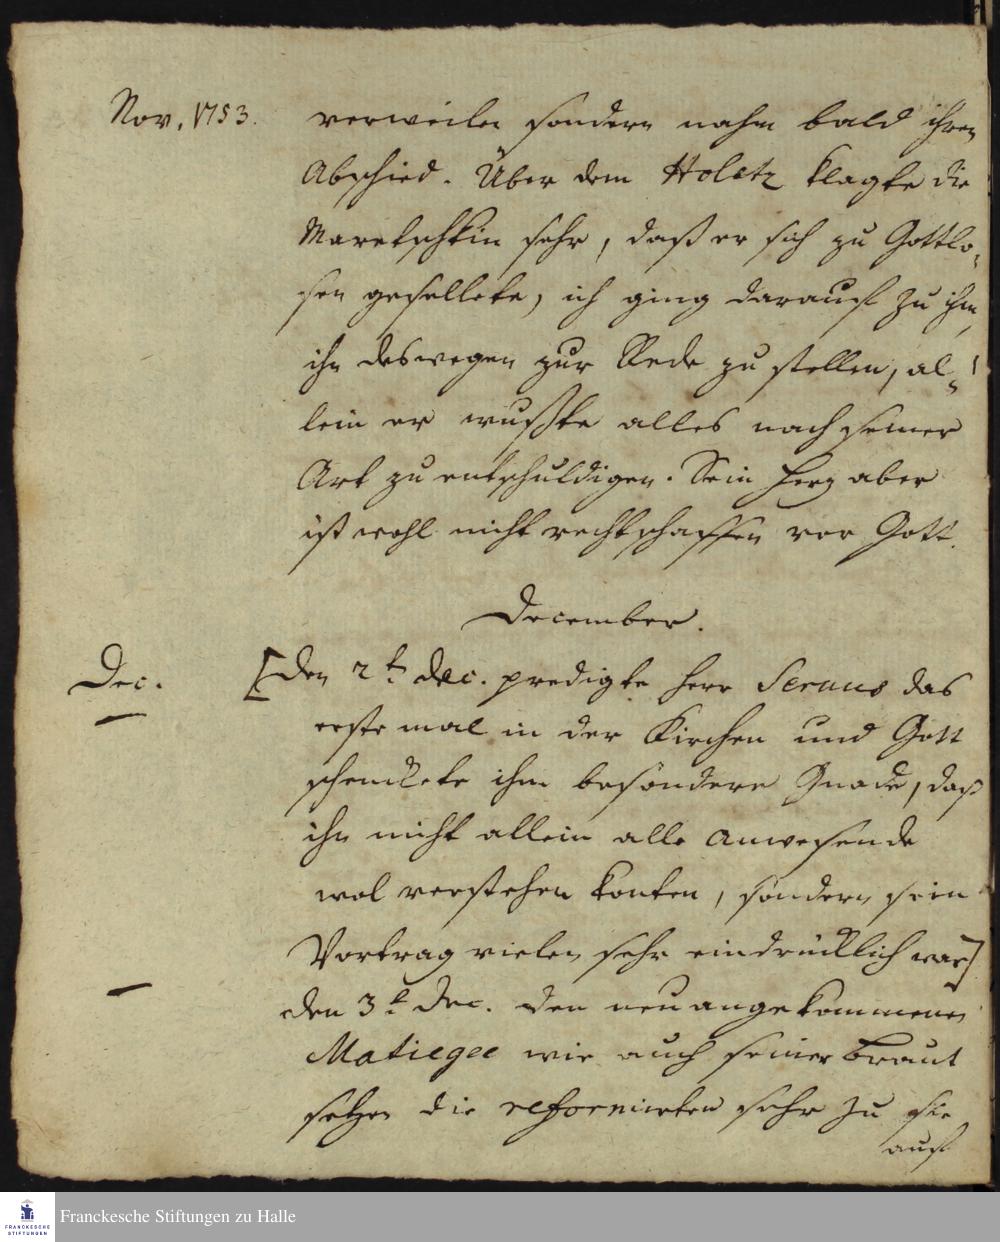 Nov. 1753.
verweilen sondern nahm bald ihren
Abschied. Über dem Holetz klagte die
Maretschkin sehr, daß er sich zu Gottlo-
sen gesellete, ich ging darauf zu ihm,
ihn deswegen zur Rede zu stellen, al-
lein er wußte alles nach seiner
Art zu entschuldigen. Sein Herz aber
ist wohl nicht rechtschaffen vor Gott.
December.
Dec.
[den 2t. Dec. predigte Herr Servus das
erste mal in der Kirchen und Gott
schenckete ihm besondere Gnade, daß
ihn nicht allein alle Anwesende
wol verstehen konten, sondern sein
Vortrag vielen sehr eindrücklich war]
den 3t. Dec. den neuangekommenen
Matiegee wie auch seiner Braut
setzen die reformirten sehr zu sie
auf
Franckesche Stiftungen zu Halle
FRANCKESCHE
STIFTUNGEN